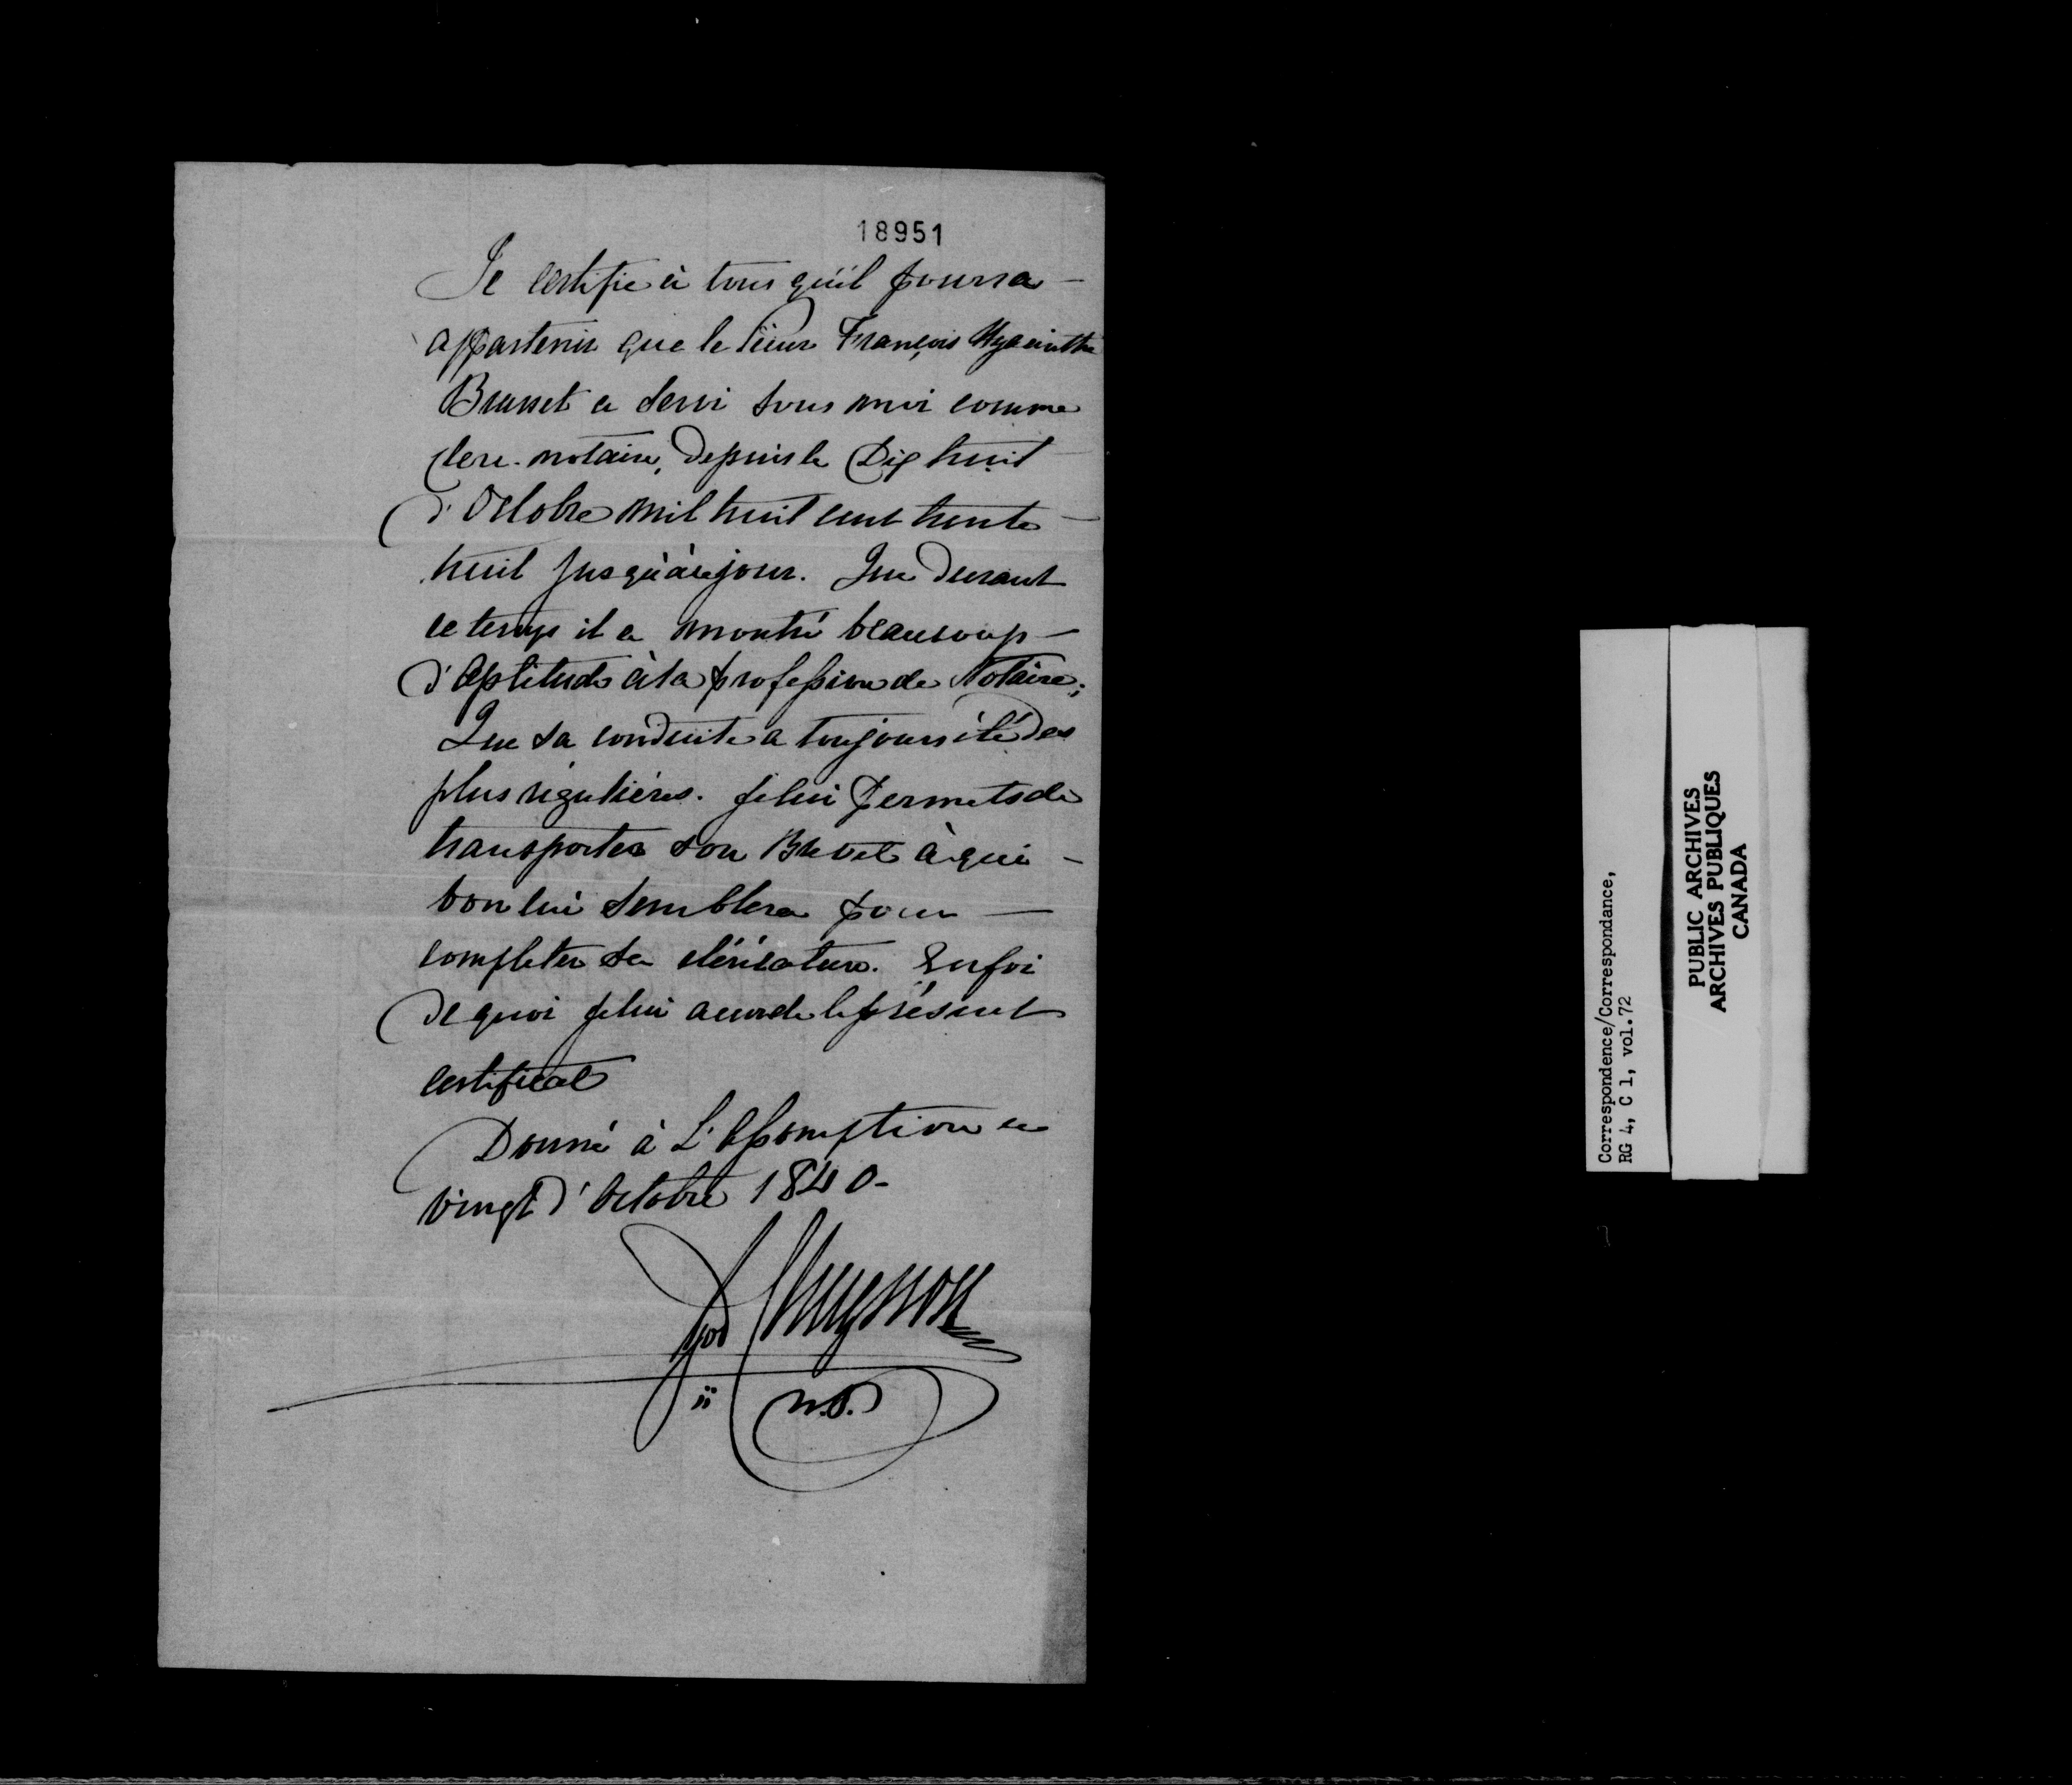 18951
Je certifie à tous qu'il pourra —
appartenir que le Sieur François Hyacinthe
Brunet a servi sous moi comme
clerc-notaire, depuis le Dix huit
d'Octobre mil huit cent trente —
huit jusqu'à ce jour. Que durant
ce temps il a montré beaucoup —
d'aptitude à la profession de Notaire;
Que sa conduite a toujours été des
plus régulières. Je lui permets de
transporter son Brevet à qui —
bon lui semblera pour —
completer sa cléricature. En foi
de quoi je lui accorde le présent
certificat
Donné à L'Assomption ce
vingt d'Octobre 1840-
N.P.
Correspondence/Correspondance,
RG 4, C 1, vol.72
PUBLIC ARCHIVES
ARCHIVES PUBLIQUES
CANADA